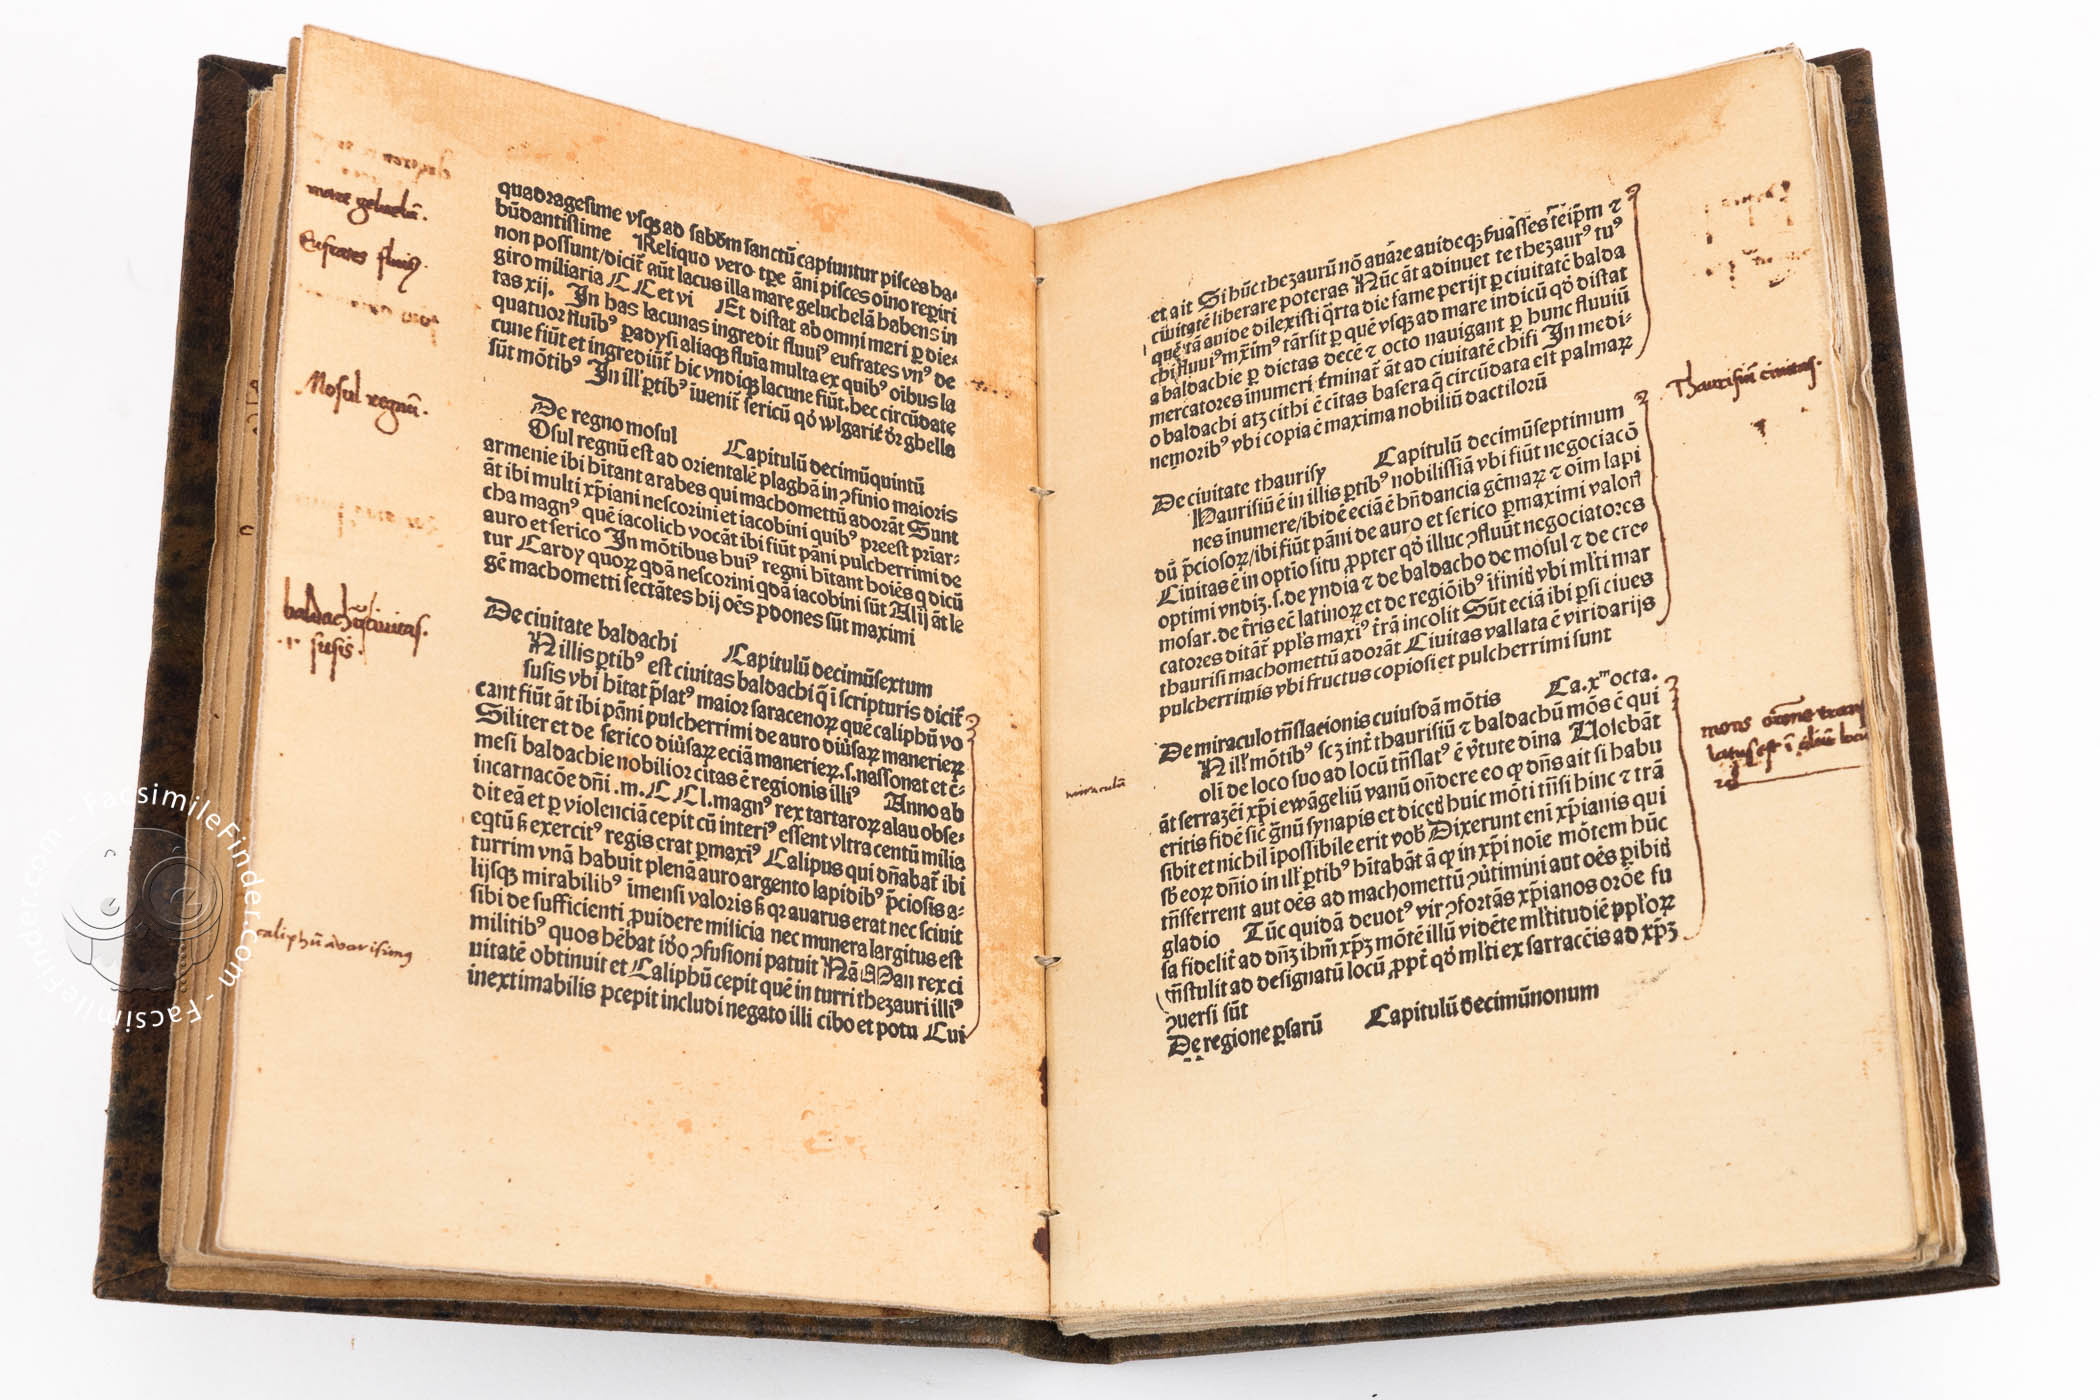 mare geluclā.
Eufrates fluviꝰ.
Mosul regnū.
baldachū civitas.
caliphū avarissimꝰ
quadragesime vsqꝫ ad sabb̄m sanctū capiuntur pisces ha⸗
būdantissime Reliquo vero tp̄e āni pisces oīno reperiri
non possunt/dicit̄ aūt lacus illa mare geluchelā habens in
giro miliaria CC et vi Et distat ab omni meri ꝑ die⸗
tas xij. In has lacunas ingredit̄ fluuiꝰ eufrates vnꝰ de
quatuor fluīb̄ꝰ ꝑadysi aliaqꝫ fluīa multa ex quibꝰ oībus la
cune fiūt et ingrediūt̄ hic vndiqꝫ lacune fiūt. hec circūdate
sūt mōtibꝰ In ill' ꝑtibꝰ iuenit̄ sericū qđ wlgarit̄ dr̄ ghella
De regno mosul Capitulū decimūquintū
Osul regnū est ad orientalē plaghā in ꝯfinio maioris
armenie ibi hītant arabes qui machomettū adorāt Sunt
āt ibi multi xp̄iani nescorini et iacobini quibꝰ preest priar⸗
cha magnꝰ quē iacolich vocāt ibi fiūt pāni pulcherrimi de
auro et serico In mōtibus huiꝰ regni hītant hoiēs q̄ dicū
tur Cardy quoꝝ qđā nescorini qđā iacobini sūt Alij āt le
gē machometti sectātes hij oēs p̄dones sūt maximi
De ciuitate baldachi Capitulū decimūsextum
N illis ꝑtibꝰ est ciuitas baldachi q̄ ī scripturis dicit̄
susis vbi hītat p̄latꝰ maior saracenoꝝ quē caliphū vo
cant fiūt āt ibi pāni pulcherrimi de auro diūsaꝝ manerieꝝ
Siliter et de serico diūsaꝝ eciā manerieꝝ.s.nassonat et c̄⸗
mesi baldachie nobilior cītas ē regionis illiꝰ Anno ab
incarnacōe dn̄i .m.CCl.magnꝰ rex tartaroꝝ alau obse⸗
dit eā et ꝑ violenciā cepit cū interiꝰ essent vltra centū milia
eqtū ẜ exercitꝰ regis erat ꝑmaxiꝰ Calipus qui dn̄abat̄ ibi
turrim vnā habuit plenā auro argento lapidibꝰ p̄ciosis a⸗
lijsqꝫ mirabilibꝰ imensi valoris ẜ qꝛ auarus erat nec sciuit
sibi de sufficienti ꝓuidere milicia nec munera largitus est
militibꝰ quos hēbat iđo ꝯfusioni patuit Nā Man rex ci
uitatē obtinuit et Caliphū cepit quē in turri thezauri illiꝰ
inextimabilis p̄cepit includi negato illi cibo et potu Cui
et ait Si hūc thezaurū nō auāre auideqꝫ ẜuasses teip̄m ⁊
ciuitatē liberare poteras Nūc āt adiuuet te thezaurꝰ tuꝰ
quē tā auide dilexisti q̄rta die fame perijt ꝑ ciuitatē balda
chi fluuiꝰ mx̄imꝰ trāsit ꝑ quē vsqꝫ ad mare indicū qđ distat
a baldachie ꝑ dictas decē ⁊ octo nauigant ꝑ hunc fluuiū
mercatores inumeri t̄minat̄ āt ad ciuitatē chisi In medi⸗
o baldachi atꝫ cithi ē cītas basera q̄ circūdata est palmaꝝ
nemoribꝰ vbi copia ē maxima nobiliū dactilorū
De ciuitate thaurisy Capitulū decimūseptimum
Naurisiū ē in illis ꝑtibꝰ nobilissīā vbi fiūt negociacō
nes inumere/ibidē eciā ē hn̄dancia gēmaꝝ ⁊ oīm lapi
dū p̄ciosoꝝ/ibi fiūt pāni de auro et serico ꝑmaximi valorꝭ
Ciuitas ē in optīo situ ꝓpter qđ illuc ꝯfluūt negociatores
optimi vndiꝫ.s.de yndia ⁊ de baldacho de mosul ⁊ de cre⸗
mosar.de t̄ris ec̄ latinoꝝ et de regiōibꝰ īfinit̄ vbi ml̄ti mar
catores ditāt̄ ppl̄s maxiꝰ t̄rā incolit Sūt eciā ibi ꝑsi ciues
thaurisi machomettū adorāt Ciuitas vallata ē viridarijs
pulcherrimis vbi fructus copiosi et pulcherrimi sunt
De miraculo trn̄slacionis cuiusdā mōtis Ca.xᵐ octa.
N ill' mōtibꝰ scꝫ int̄ thaurisiū ⁊ baldachū mōs ē qui
oli de loco suo ad locū trn̄slatꝰ ē v̄tute dīna Uolebāt
āt serrazēi xp̄i ewāgeliū vanū on̄dere eo ꝙ dn̄s ait si habu
eritis fidē sic̄ g̃nū synapis et dicet̄ huic mōti trn̄si hinc ⁊ trā
sibit et nichil īpossibile erit vob̄ Dixerunt eni xp̄ianis qui
sb̄ eoꝝ dn̄io in ill' ꝑtibꝰ hītabāt ā ꝙ in xp̄i noīe mōtem hūc
trn̄sferrent aut oēs ad machomettū ꝯūtimini aut oēs ꝑibit̄
gladio Tūc quidā deuotꝰ vir ꝯfortās xp̄ianos orōe fu
sa fidelit̄ ad dn̄ꝫ ihm̄ xp̄ꝫ mōtē illū vidēte ml̄titudiē ppl̄oꝝ
trn̄stulit ad designatū locū ꝓpt̄ qđ ml̄ti ex sarracēis ad xp̄ꝫ
ꝯuersi sūt
De regione ꝑsarū Capitulū decimūnonum
miraculū
Thaurisiū civitas.
mons
FacsimileFinder.com - FacsimileFinder.com